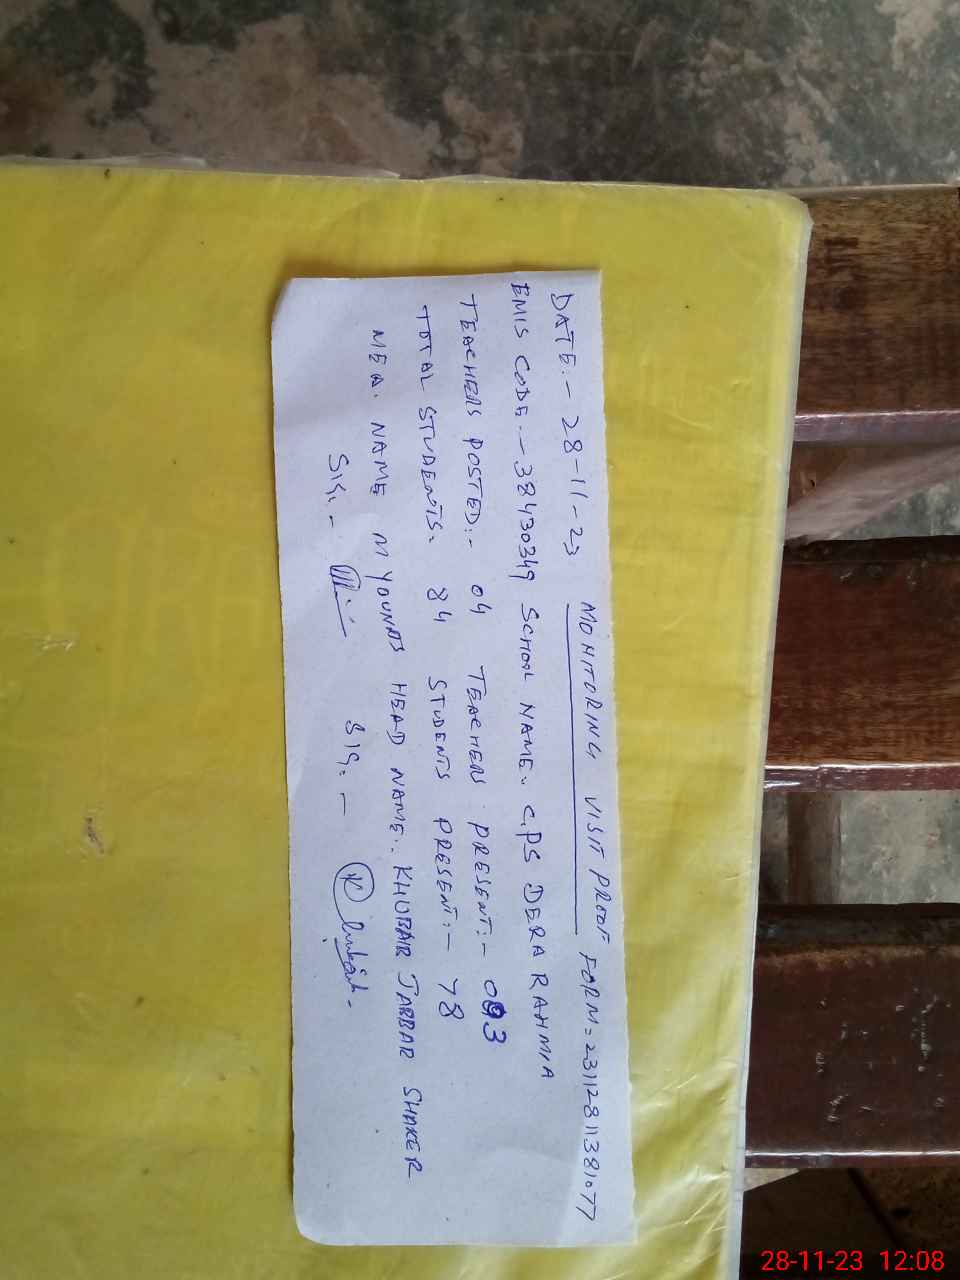 MONITORING VISIT PROOF FORM = 23112811381077
DATE:- 28-11-23
EMIS CODE:- 38430349 SCHOOL NAME:- C.PS DERA RAHMIA
TEACHERS POSTED:- 04 TEACHERS PRESENT:- 03
TOTAL STUDENTS:- 84 STUDENTS PRESENT:- 78
MEA. NAME M YOUNAS HEAD NAME:- KHUBAIR JABBAR SHAKER
SIG:- SIG:-
28-11-23 12:08